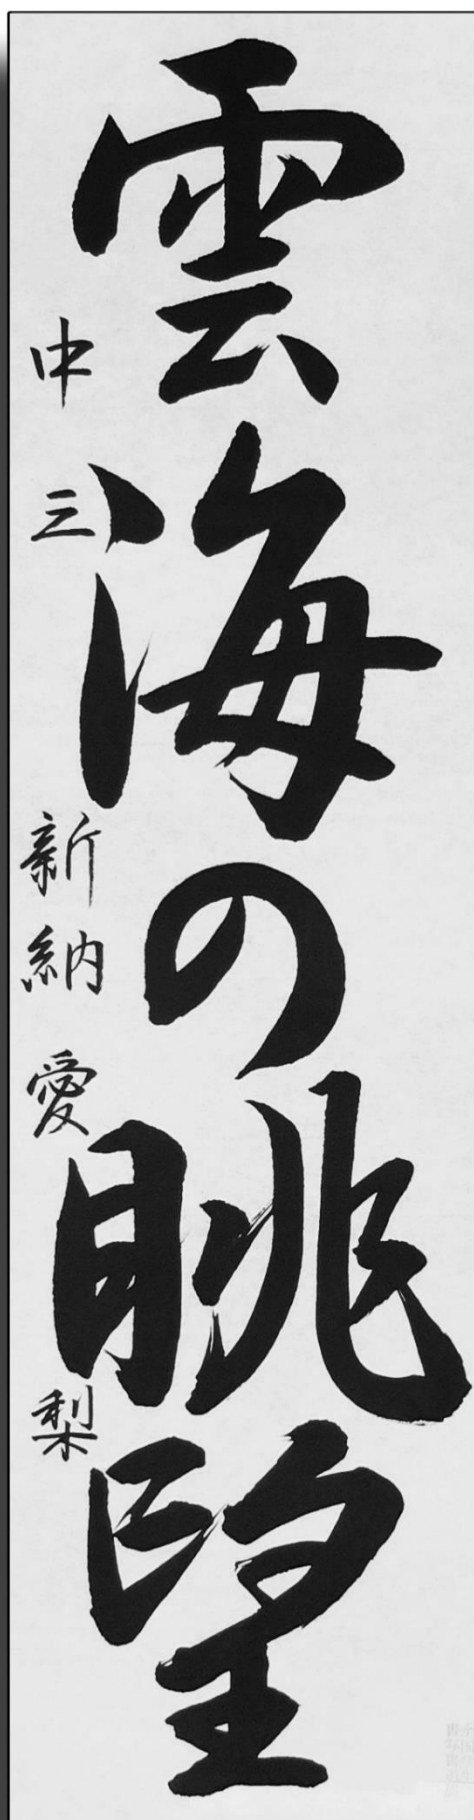 雲海の眺望
中三 新納愛梨